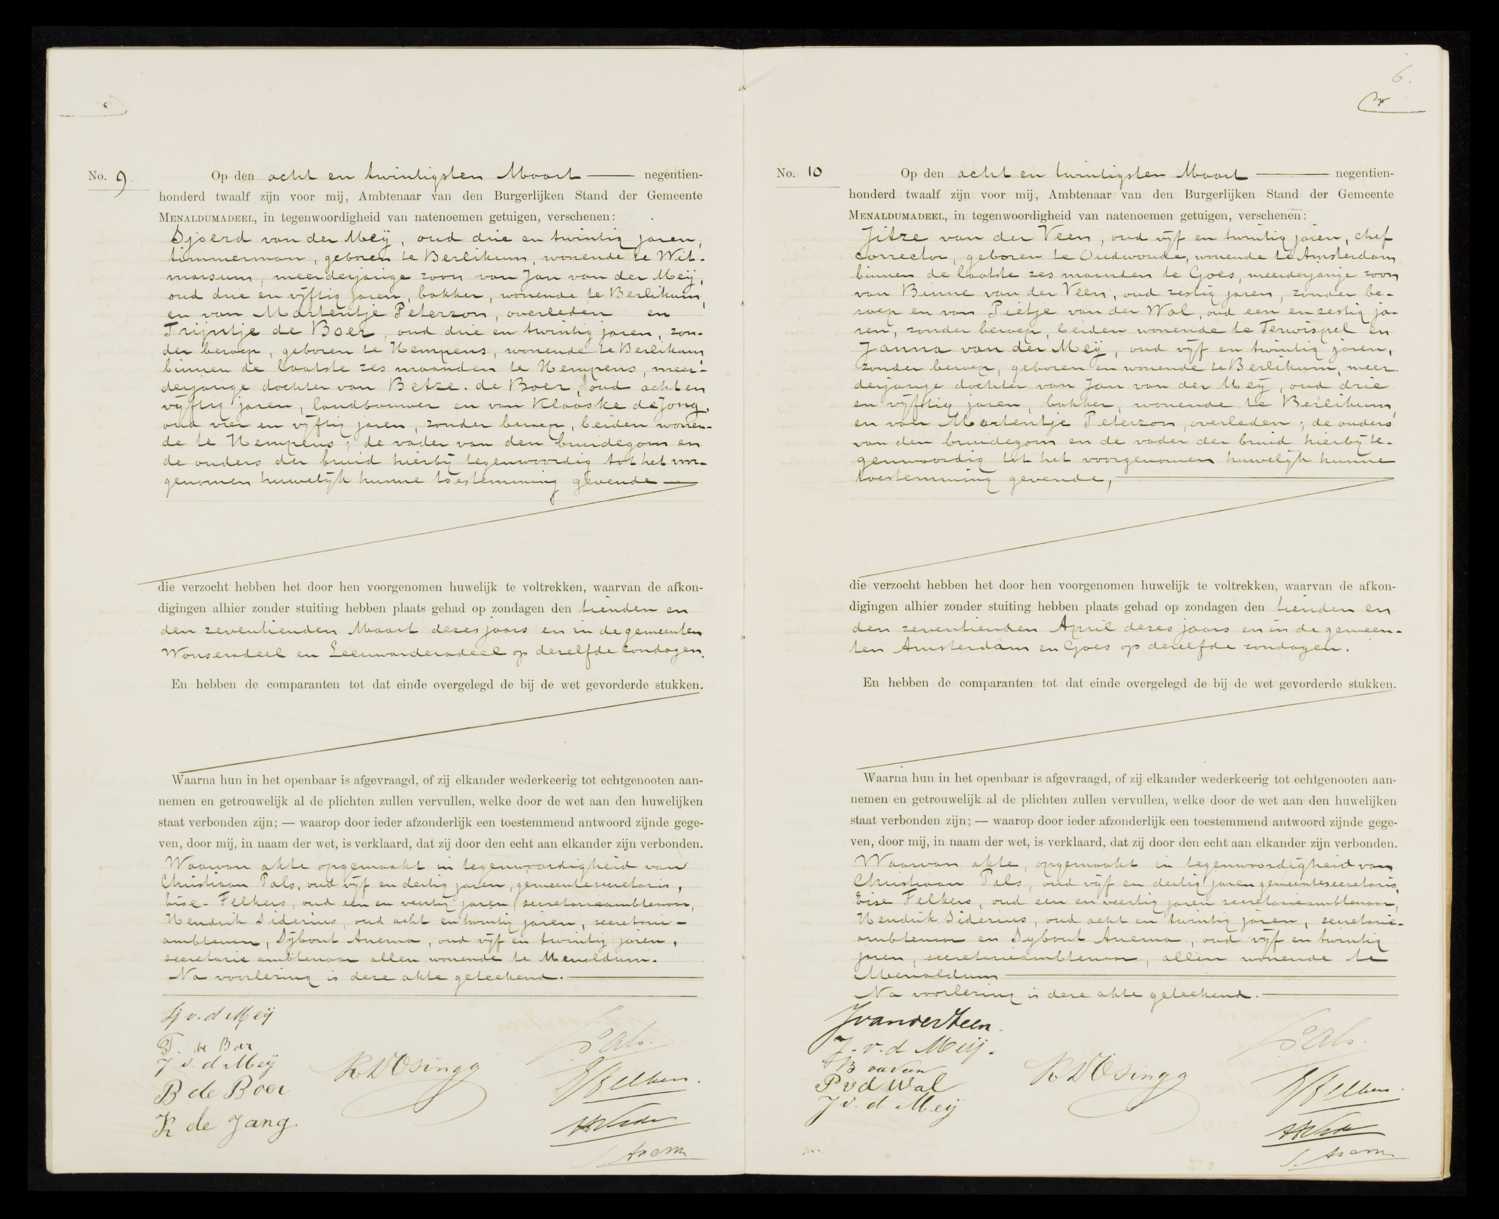 No. 9
Op den acht en twintigsten Maart negentien-
honderd twaalf zijn voor mij, Ambtenaar van den Burgerlijken Stand der Gemeente
MENALDUMADEEL, in tegenwoordigheid van natenoemen getuigen, verschenen:
Sjoerd van der Meij, oud drie en twintig jaren,
timmerman, geboren te Berlikum, wonende te Wit-
marsum, meerderjarige zoon van Jan van der Meij,
oud drie en vijftig jaren, bakker, wonende te Berlikum,
en van Martentje Peterzon, overleden en
Trijntje de Boer, oud drie en twintig jaren, zon-
der beroep, geboren te Hempens, wonende te Berlikum
binnen de laatste zes maanden te Hempens, meer-
derjarige dochter van Betze de Boer, oud acht en
vijftig jaren, landbouwer en van Klaaske de Jong,
oud vier en vijftig jaren, zonder beroep, beiden wonen-
de te Hempens; de vader van den bruidegom en
de ouders der bruid hierbij tegenwoordig tot het voor-
genomen huwelijk hunne toestemming gevende
die verzocht hebben het door hen voorgenomen huwelijk te voltrekken, waarvan de afkon-
digingen alhier zonder stuiting hebben plaats gehad op zondagen den tienden en
den zeventienden Maart dezes jaars en in de gemeenten
Wonseradeel en Leeuwarderadeel op dezelfde zondagen.
En hebben de comparanten tot dat einde overgelegd de bij de wet gevorderde stukken.
Waarna hun in het openbaar is afgevraagd, of zij elkander wederkeerig tot echtgenooten aan-
nemen en getrouwelijk al de plichten zullen vervullen, welke door de wet aan den huwelijken
staat verbonden zijn; — waarop door ieder afzonderlijk een toestemmend antwoord zijnde gege-
ven, door mij, in naam der wet, is verklaard, dat zij door den echt aan elkander zijn verbonden.
Waarvan akte opgemaakt in tegenwoordigheid van
Christiaan Pals, oud vijf en dertig jaren, gemeentesecretaris,
Eise Felkers, oud een en veertig jaren, secretarieambtenaar,
Hendrik Siderius, oud acht en twintig jaren, secretarie-
ambtenaar, Sybout Anema, oud vijf en twintig jaren,
secretarie ambtenaar allen wonende te Menaldum.
Na voorlezing is deze akte geteekend.
Sj v. d Meij
T. de Boer
J v. d Meij
B de Boer
K de Jong
Pals.
Felkers.
Anema
6.
No. 10
Op den acht en twintigsten Maart negentien-
honderd twaalf zijn voor mij, Ambtenaar van den Burgerlijken Stand der Gemeente
MENALDUMADEEL, in tegenwoordigheid van natenoemen getuigen, verschenen:
Jitze van der Veen, oud vijf en twintig jaren, chef
corrector, geboren te Oudwoude, wonende te Amsterdam
binnen de laatste zes maanden te Goes, meerderjarige zoon
van Binne van der Veen, oud zestig jaren, zonder be-
roep en van Pietje van der Wal, oud een en zestig ja-
ren, zonder beroep, beiden wonende te Terwispel en
Janna van der Meij, oud vijf en twintig jaren,
zonder beroep, geboren en wonende te Berlikum, meer
derjarige dochter van Jan van der Meij, oud drie
en vijftig jaren, bakker, wonende te Berlikum,
en van Martentje Peterzon, overleden; de ouders
van den bruidegom en de vader der bruid hierbij te-
genwoordig tot het voorgenomen huwelijk hunne
toestemming gevende,
die verzocht hebben het door hen voorgenomen huwelijk te voltrekken, waarvan de afkon-
digingen alhier zonder stuiting hebben plaats gehad op zondagen den tienden en
den zeventienden April dezes jaars en in de gemeen-
ten Amsterdam en Goes op dezelfde zondagen.
En hebben de comparanten tot dat einde overgelegd de bij de wet gevorderde stukken.
Waarna hun in het openbaar is afgevraagd, of zij elkander wederkeerig tot echtgenooten aan-
nemen en getrouwelijk al de plichten zullen vervullen, welke door de wet aan den huwelijken
staat verbonden zijn; — waarop door ieder afzonderlijk een toestemmend antwoord zijnde gege-
ven, door mij, in naam der wet, is verklaard, dat zij door den echt aan elkander zijn verbonden.
Waarvan akte, opgemaakt in tegenwoordigheid van
Christiaan Pals, oud vijf en dertig jaren gemeentesecretaris,
Eise Felkers, oud een en veertig jaren secretarieambtenaar,
Hendrik Siderius, oud acht en twintig jaren, secretarie-
ambtenaar en Sybout Anema, oud vijf en twintig
jaren, secretarieambtenaar, allen wonende te
Menaldum
Na voorlezing is deze akte geteekend.
J van der Veen.
J. v. d Meij.
B vd Veen
P v d Wal
J v. d Meij
Pals.
Felkers.
Anema